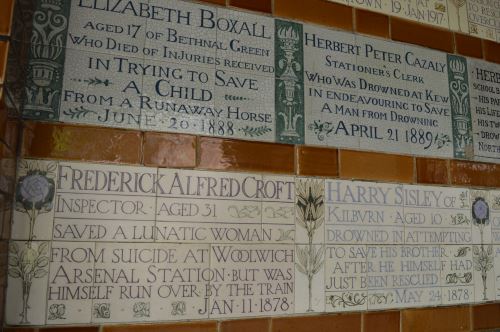 ELIZABETH BOXALL
AGED 17 OF BETHNAL GREEN
WHO DIED OF INJURIES RECEIVED
IN TRYING TO SAVE
A CHILD
FROM A RUNAWAY HORSE
JUNE 20 1888
HERBERT PETER CAZALY
STATIONER'S CLERK
WHO WAS DROWNED AT KEW
IN ENDEAVOURING TO SAVE
A MAN FROM DROWNING
APRIL 21 1889
19 JAN 1917
FREDERICK ALFRED CROFT
INSPECTOR · AGED 31
SAVED A LUNATIC WOMAN
FROM SUICIDE AT WOOLWICH
ARSENAL STATION · BUT WAS
HIMSELF RUN OVER BY THE TRAIN
JAN · 11 · 1878 ·
HARRY SISLEY OF
KILBVRN · AGED 10 ·
DROWNED IN ATTEMPTING
TO SAVE HIS BROTHER ·
AFTER HE HIMSELF HAD
JUST BEEN RESCUED ·
MAY 24 · 1878